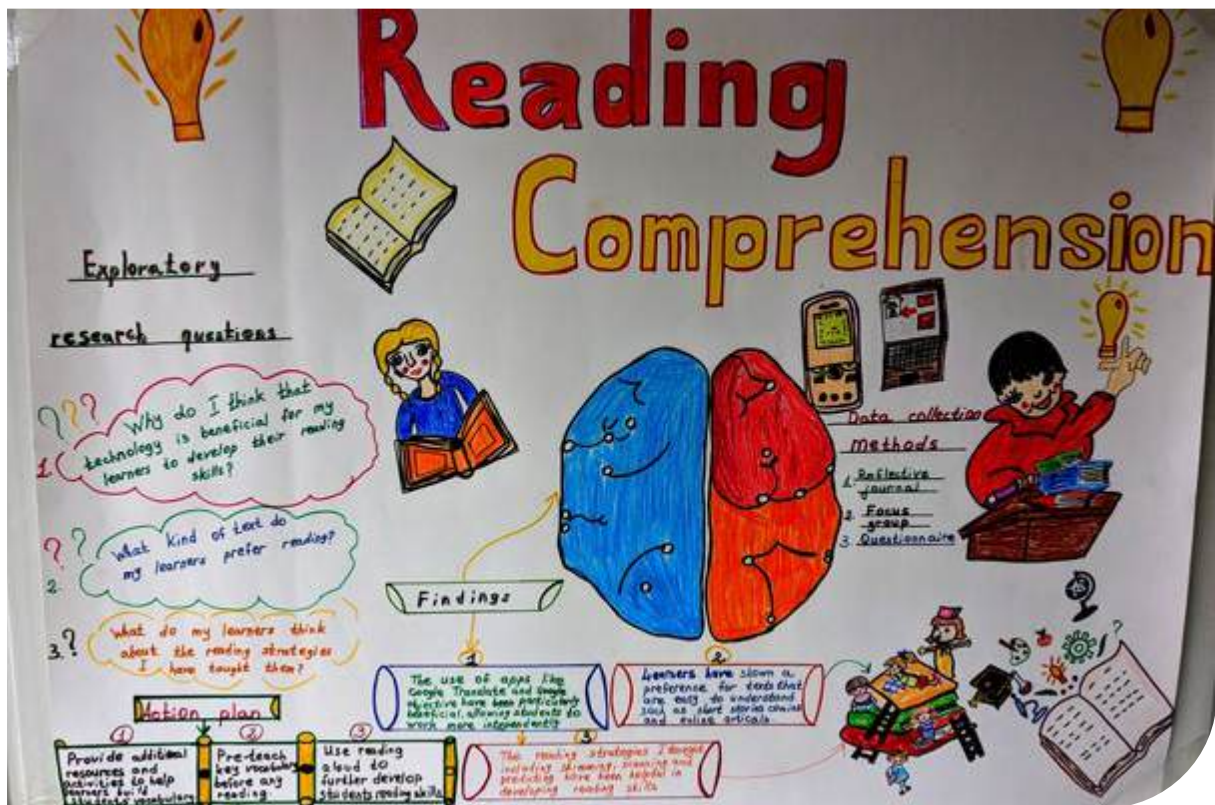 Reading
Comprehension
Exploratory
research questions
???
1. Why do I think that
technology is beneficial for my
learners to develop their reading
skills?
??
2. What kind of text do
my learners prefer reading?
3. ?
What do my learners think
about the reading strategies
I have tought them?
Data collection
Methods
1. Reflective
journal
2. Focus
group
3. Questionnaire
Findings
1
The use of apps like
Google Translate and Google
objective have been particulary
beneficial, allowing students to
work more
2
Learners have shown a
preference for texts that
are easy to understand
such as short stories
and online
3
The reading strategies I
including skimming, scanning and
predicting have been helpful in
developing reading skills
Action plan
1
Provide additional
resources and
activities to help
learners build
students' vocabulary
2
Pre-teach
key vocabulary
before any
reading
3
Use reading
aloud to
further develop
students reading skills
?